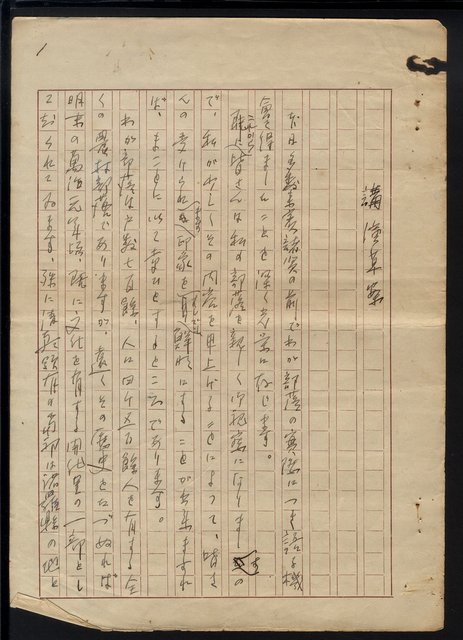 講演草案
だ日多数貴賓諸賢の前でわが部落の実際につき話す機
會を得ましたことを深く光栄に存じます。
唯今から皆さんは私の部落を親しく御視察になりますの
で、私が少しくその内容を申上げることによって、皆さ
んの受けられる印象を鮮明にすることが出来ますれ
ば、まことに以て幸ひとするところであります。
わが部落は戸数七百餘、人口四千五百餘人を有する全
くの農村部落でありますが、遠くその歴史をたづぬれば
明末の萬治元年頃、既に文化を有する開化里の一部とし
て知られて居ます。殊に清朝領有の当初は諸羅縣の地と